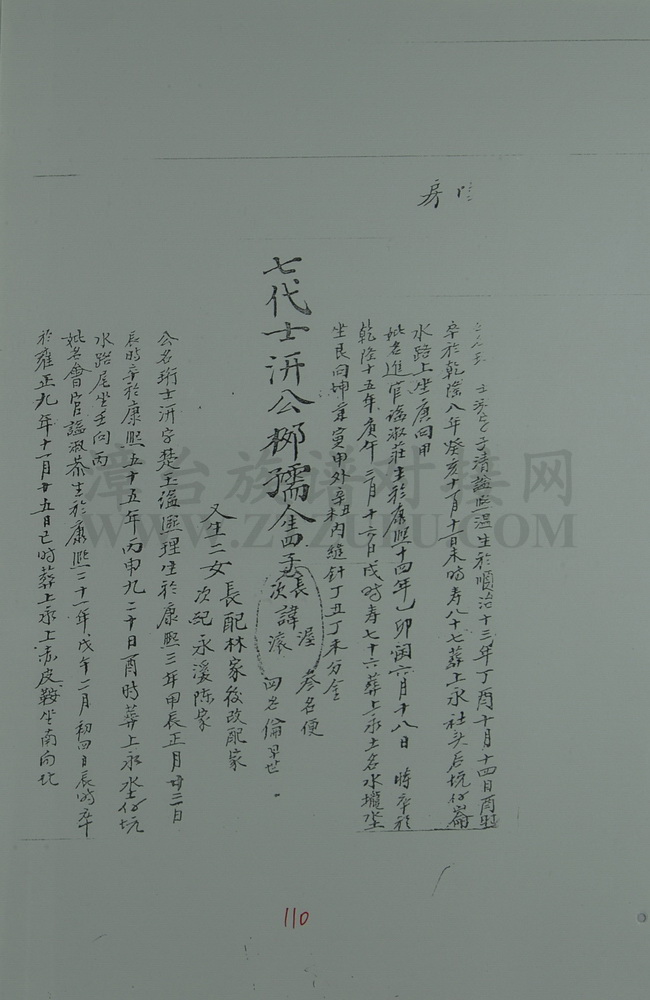 房
子清謚熙温生於順治十三年丁酉十月十四日酉時
卒於乾隆八年癸亥十月十日未時寿八十七葬上永社头后坑仔崙
水路上坐庚向甲
妣名進官謚淑莊生於康熙十四年乙卯闰六月十八日 時卒於
乾隆十五年庚午三月十六日戌時寿七十六葬上永土名水壠坐
坐艮向坤兼寅申外辛丑辛未内縫針丁丑丁未分金
七代士汧公郷孺公四子
長諱渥
次諱滾
叁名便
四名倫早世
又生二女
長配林家後改配家
次紀永溪陈家
公名珩士汧字楚玉謚熙理生於康熙三年甲辰正月廿三日
辰時卒於康熙五十五年丙申九二十日酉時葬上永水坐仔坑
水路尾坐壬向丙
妣名會官謚淑恭生於康熙二十一年戊午二月初四日辰時卒
於雍正九年十一月廿五日巳時葬上永上赤皮鞍坐南向北
漳台族谱对接网
WWW.ZTZUPU.COM
110